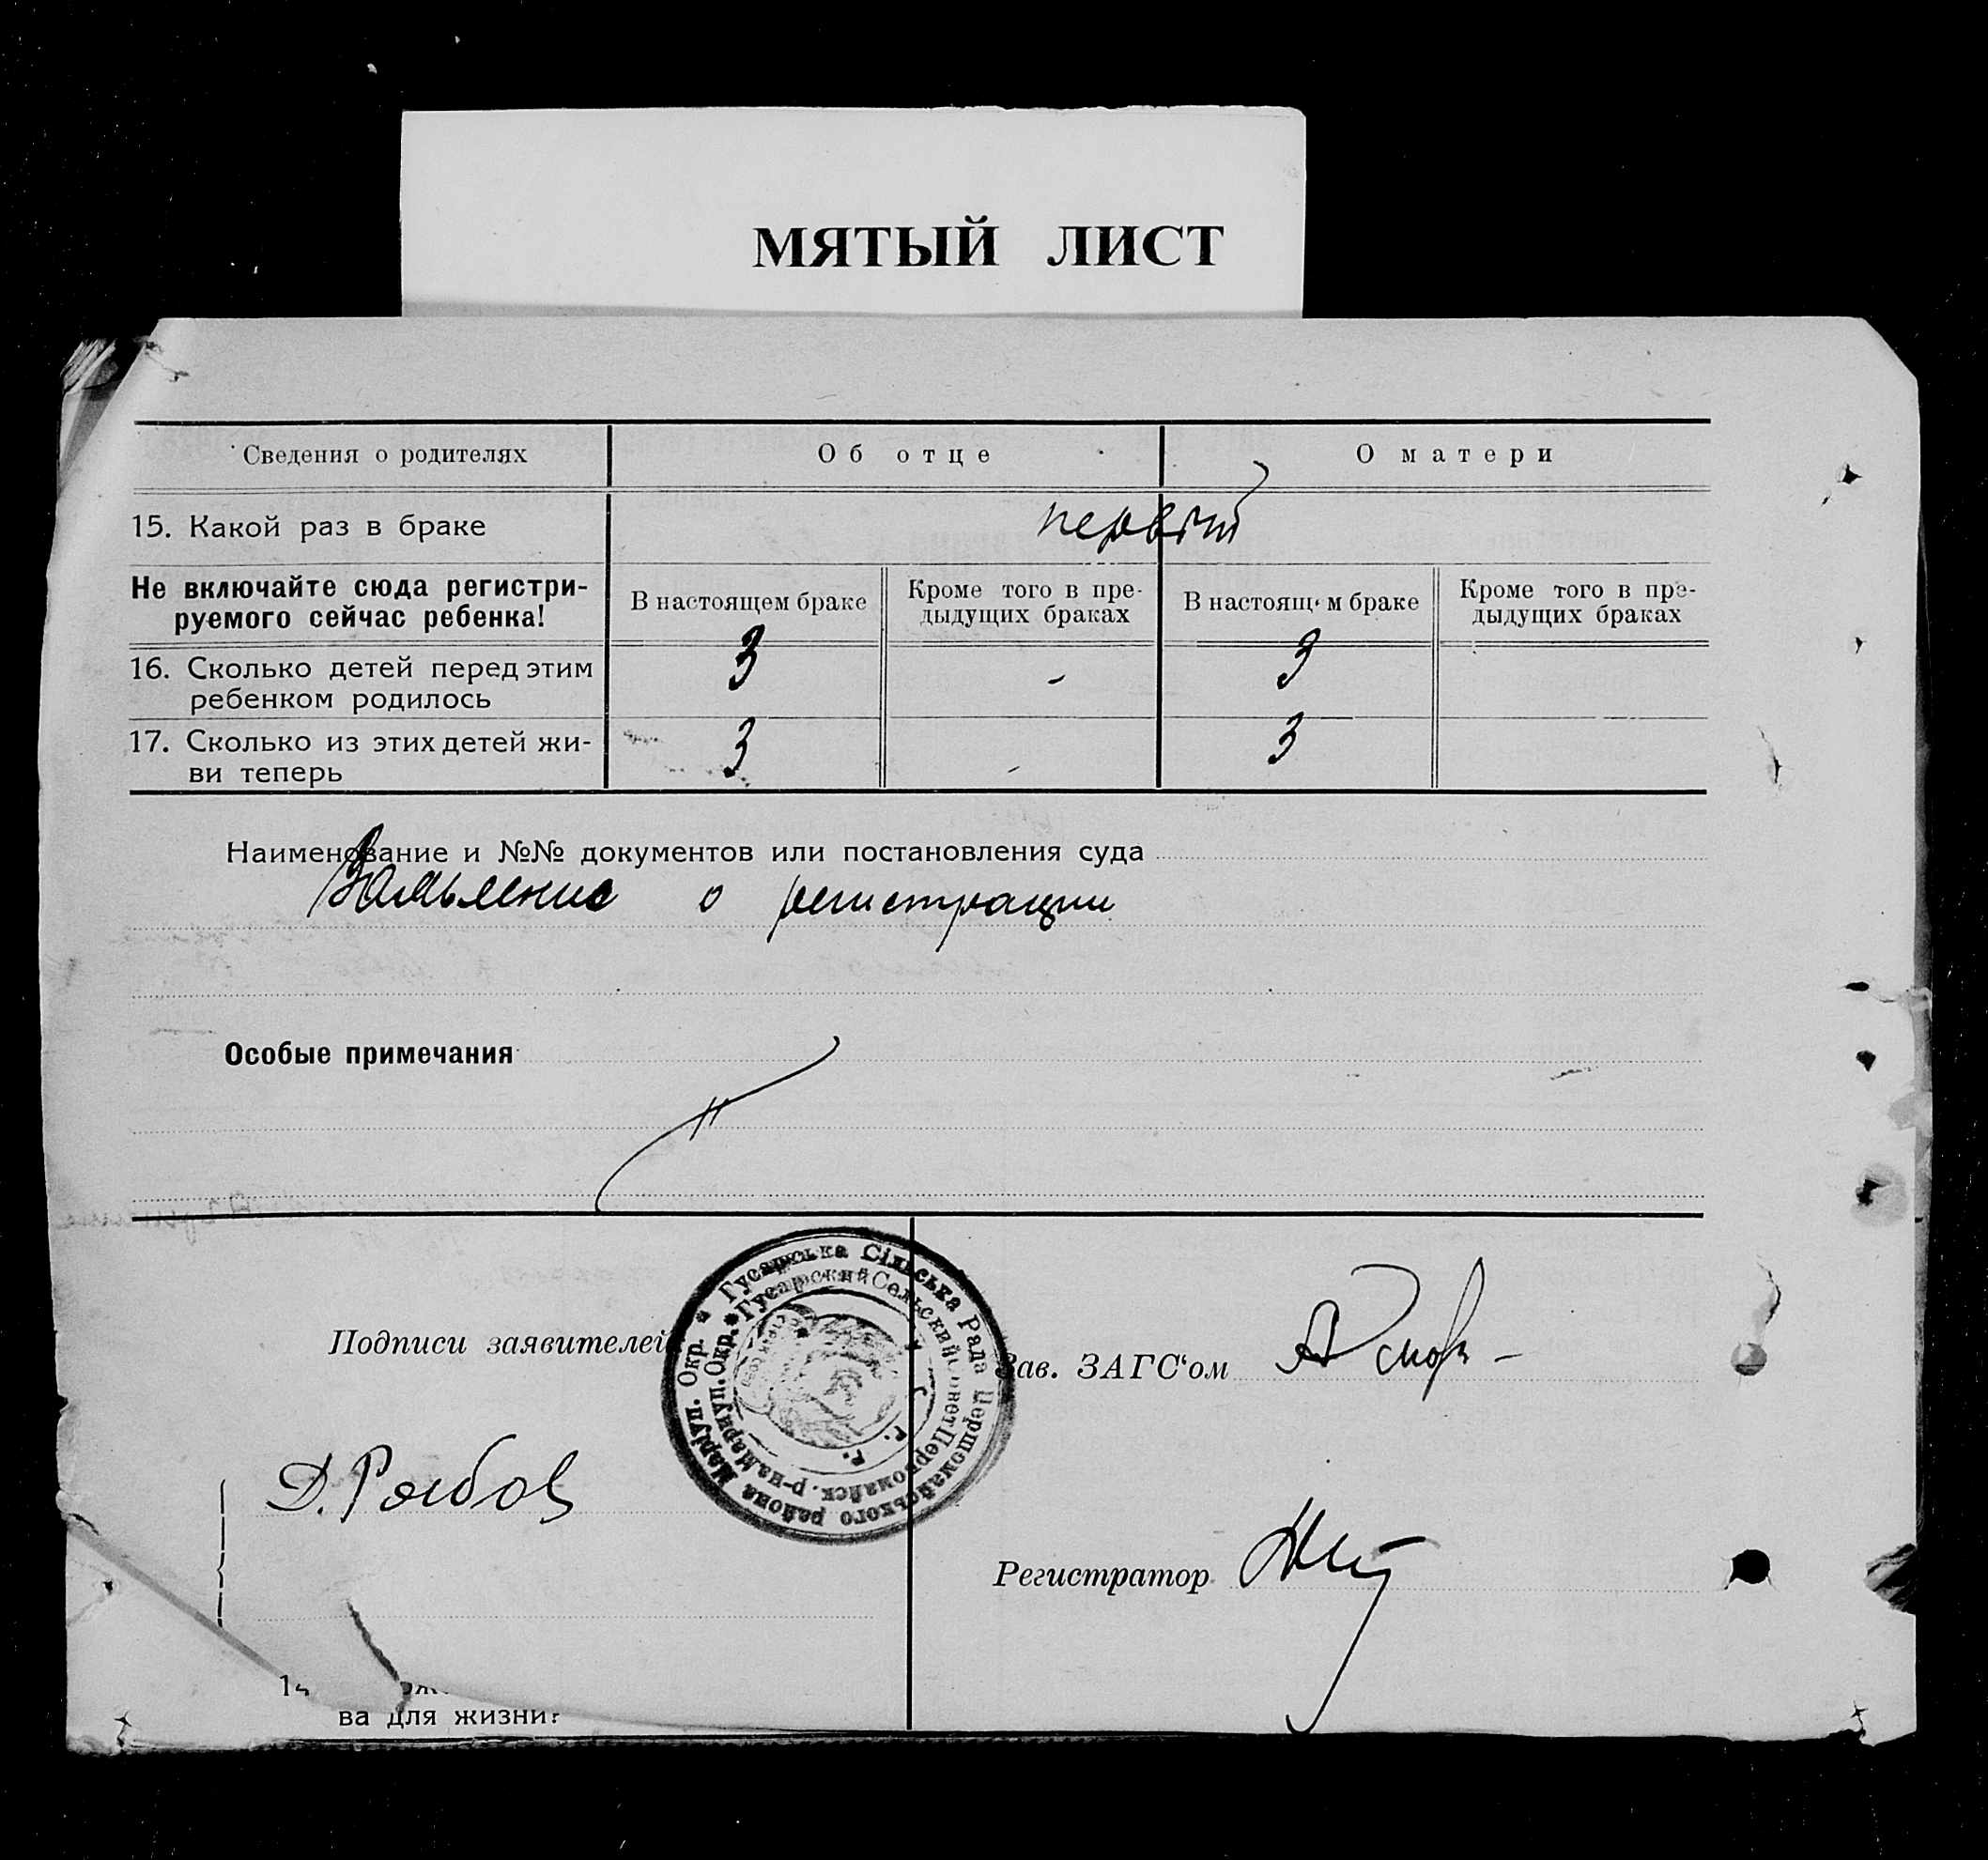 МЯТЫЙ ЛИСТ
Сведения о родителях Об отце О матери
15. Какой раз в браке первый
Не включайте сюда регистри-
руемого сейчас ребенка!
В настоящем браке
Кроме того в пре-
дыдущих браках
В настоящ м браке
Кроме того в пре-
дыдущих браках
16. Сколько детей перед этим
ребенком родилось
3 - 3
17. Сколько из этих детей жи-
ви теперь
3 - 3
Наименование и №№ документов или постановления суда
Заявление о регистрации
Особые примечания
Подписи заявителей
Гусарська Сільська Рада Першомайського района Маріуп. Окр.
Гусарский Сельский Совет Первомайск. р-на Мариуп. Окр.
Зав. ЗАГС‘ом
Д. Рябов
Регистратор
ва для жизни?